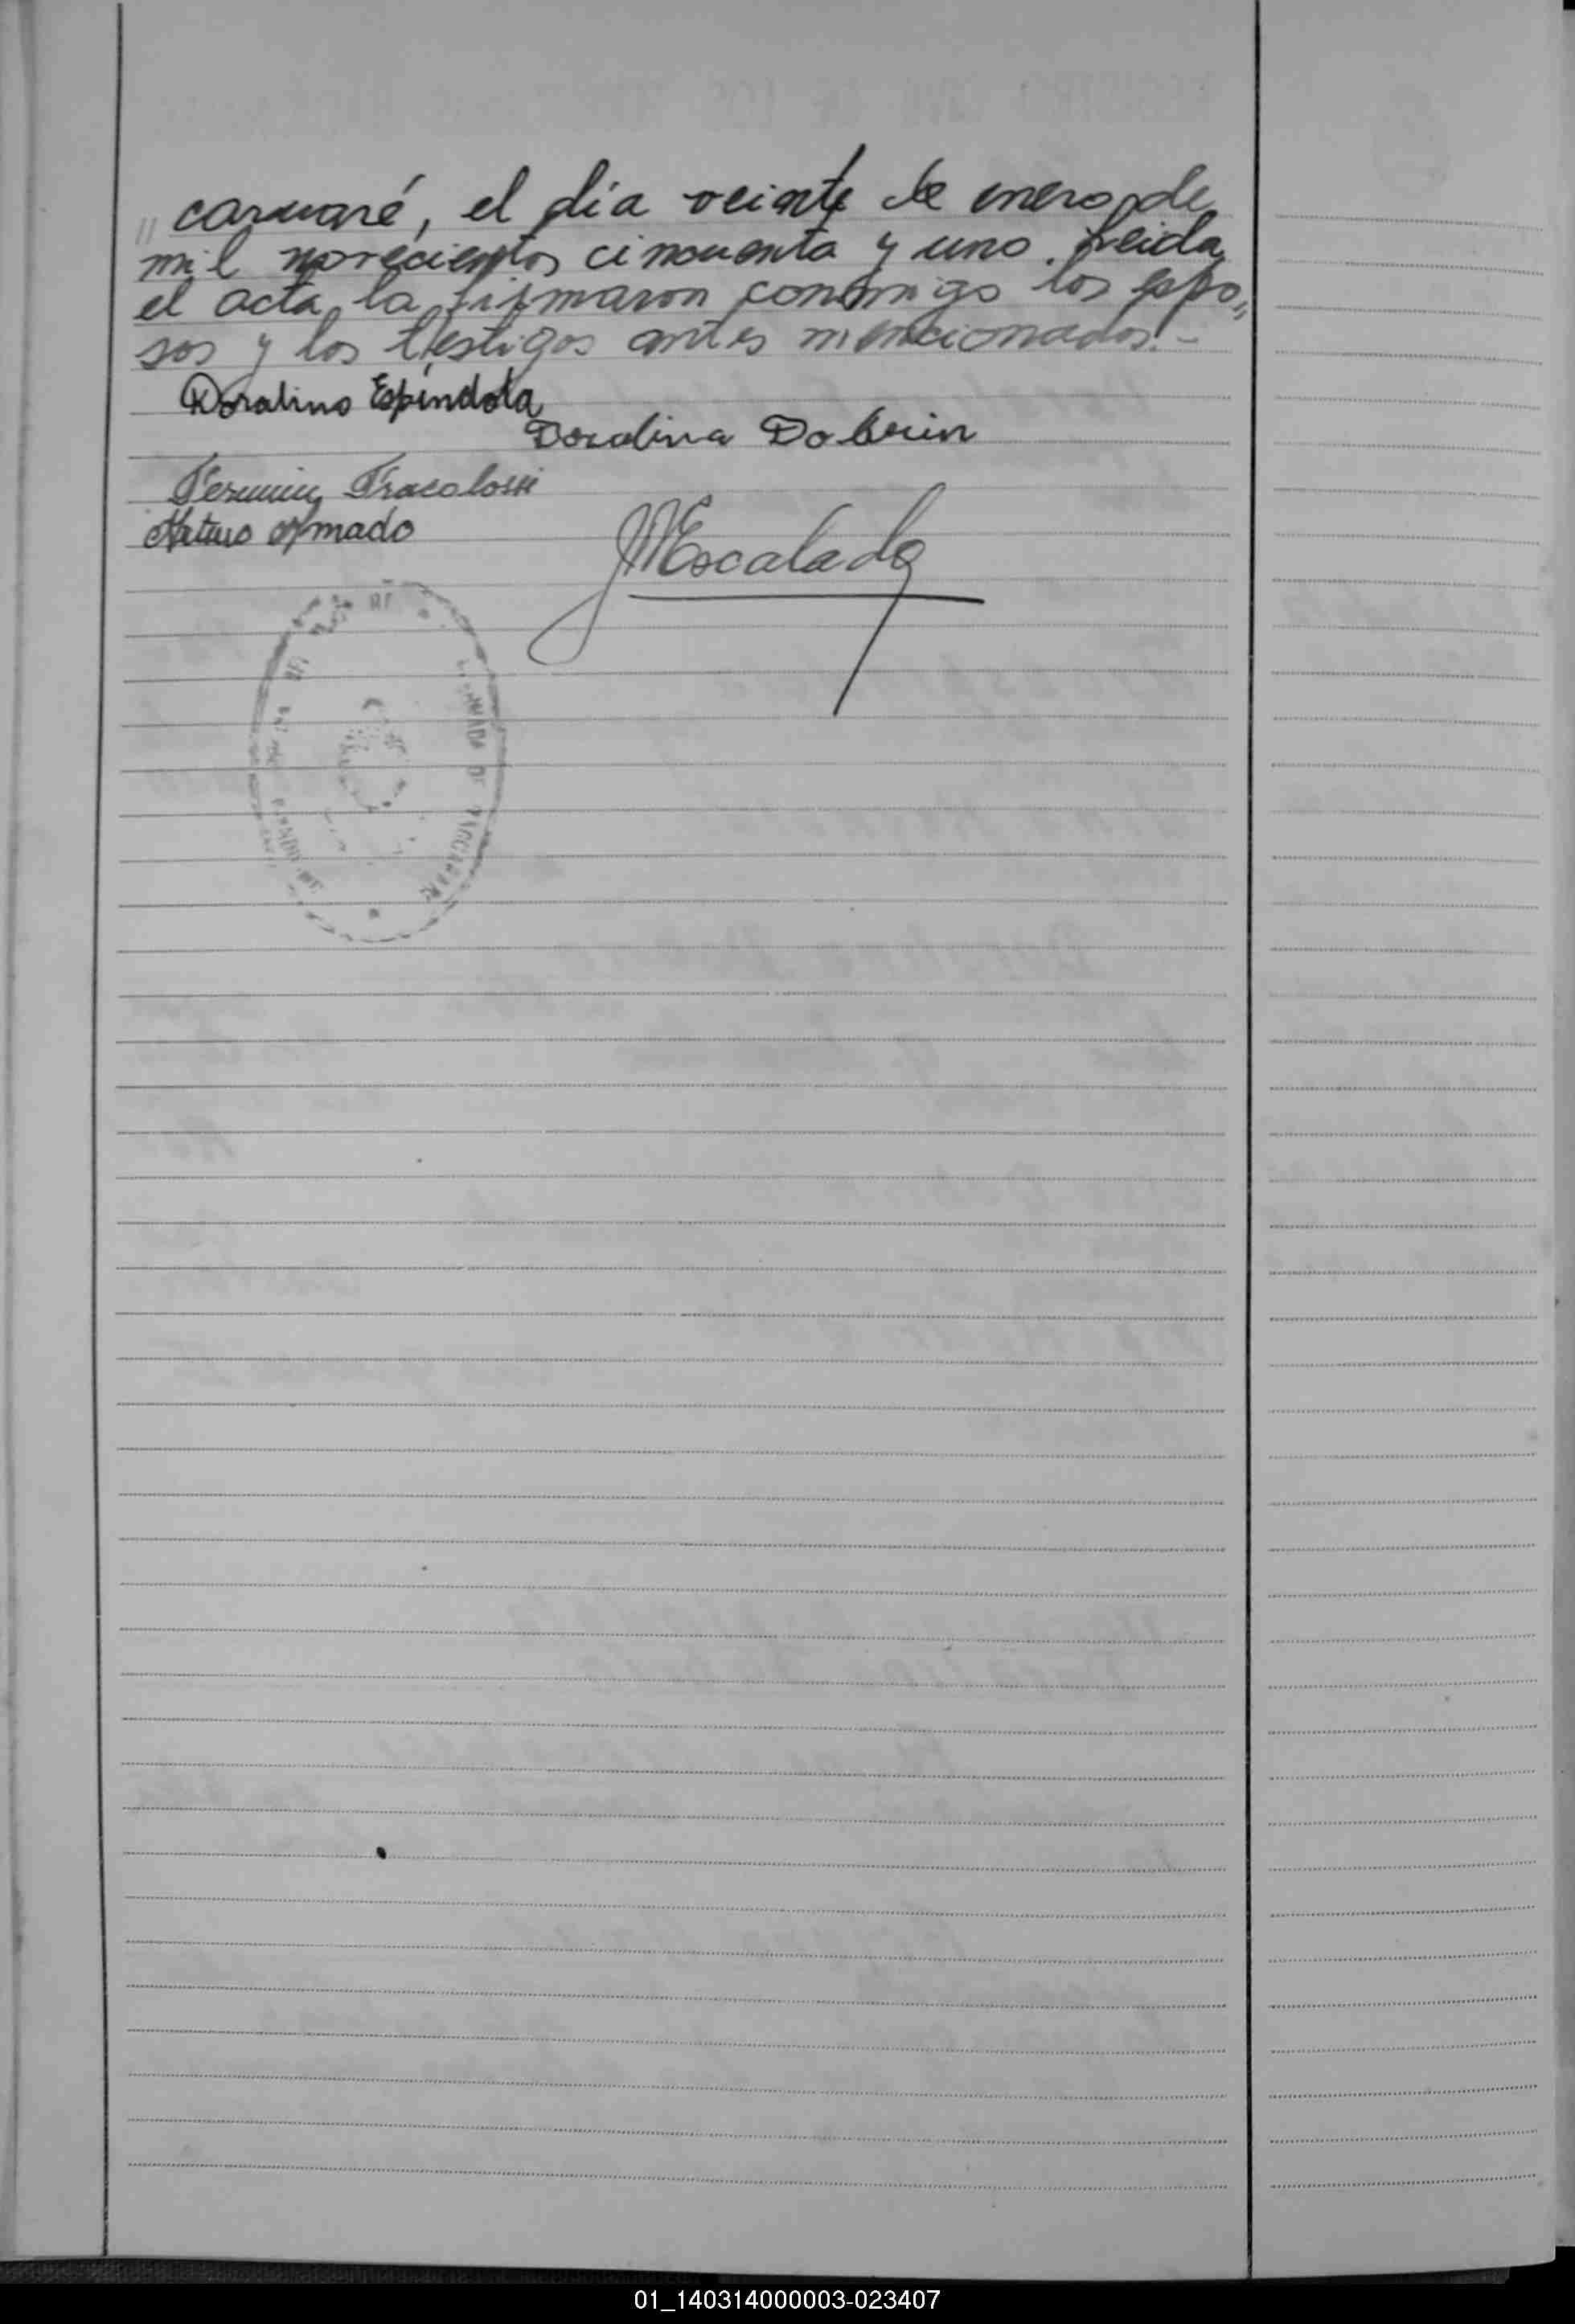 " caruaré, el día veinte de enero de
mil novecientos cincuenta y uno. Leida
el acta la firmaron conmigo los espo"
sos y los testigos antes mencionados.-
Doralino Espíndola
Doralina Dobrin
Fermin Tracolossi
Arturo Amado
JMEscalada
01_140314000003-023407